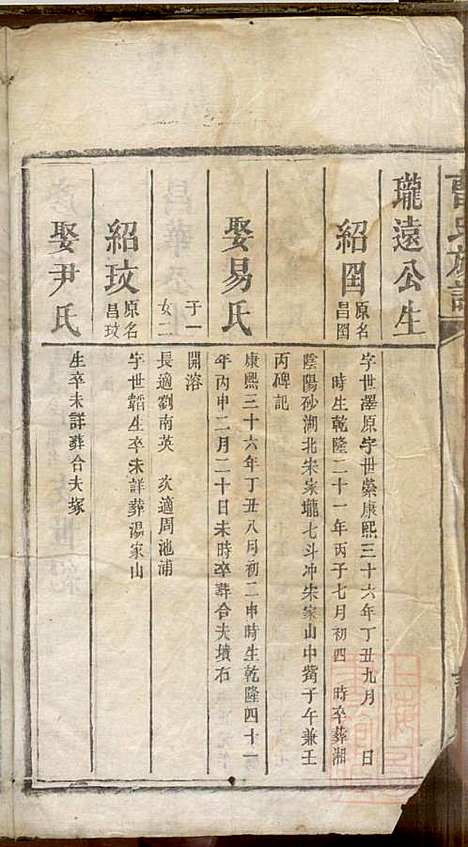 曹氏族譜
瓏遠公生
紹圉 原名昌圉
字世澤原字世縈康熙三十六年丁丑九月 日
時生乾隆二十一年丙子七月初四 時卒葬湘
陰陽砂湖北宋家壠七斗冲朱家山中嘴子午兼壬
丙碑記
娶易氏
康熙三十六年丁丑八月初二申時生乾隆四十一
年丙申二月二十日未時卒葬合夫墳右
子一
開溶
女二
長適劉南英 次適周池浦
紹玟 原名昌玟
字世韜生卒未詳葬湯家山
娶尹氏
生卒未詳葬合夫塚